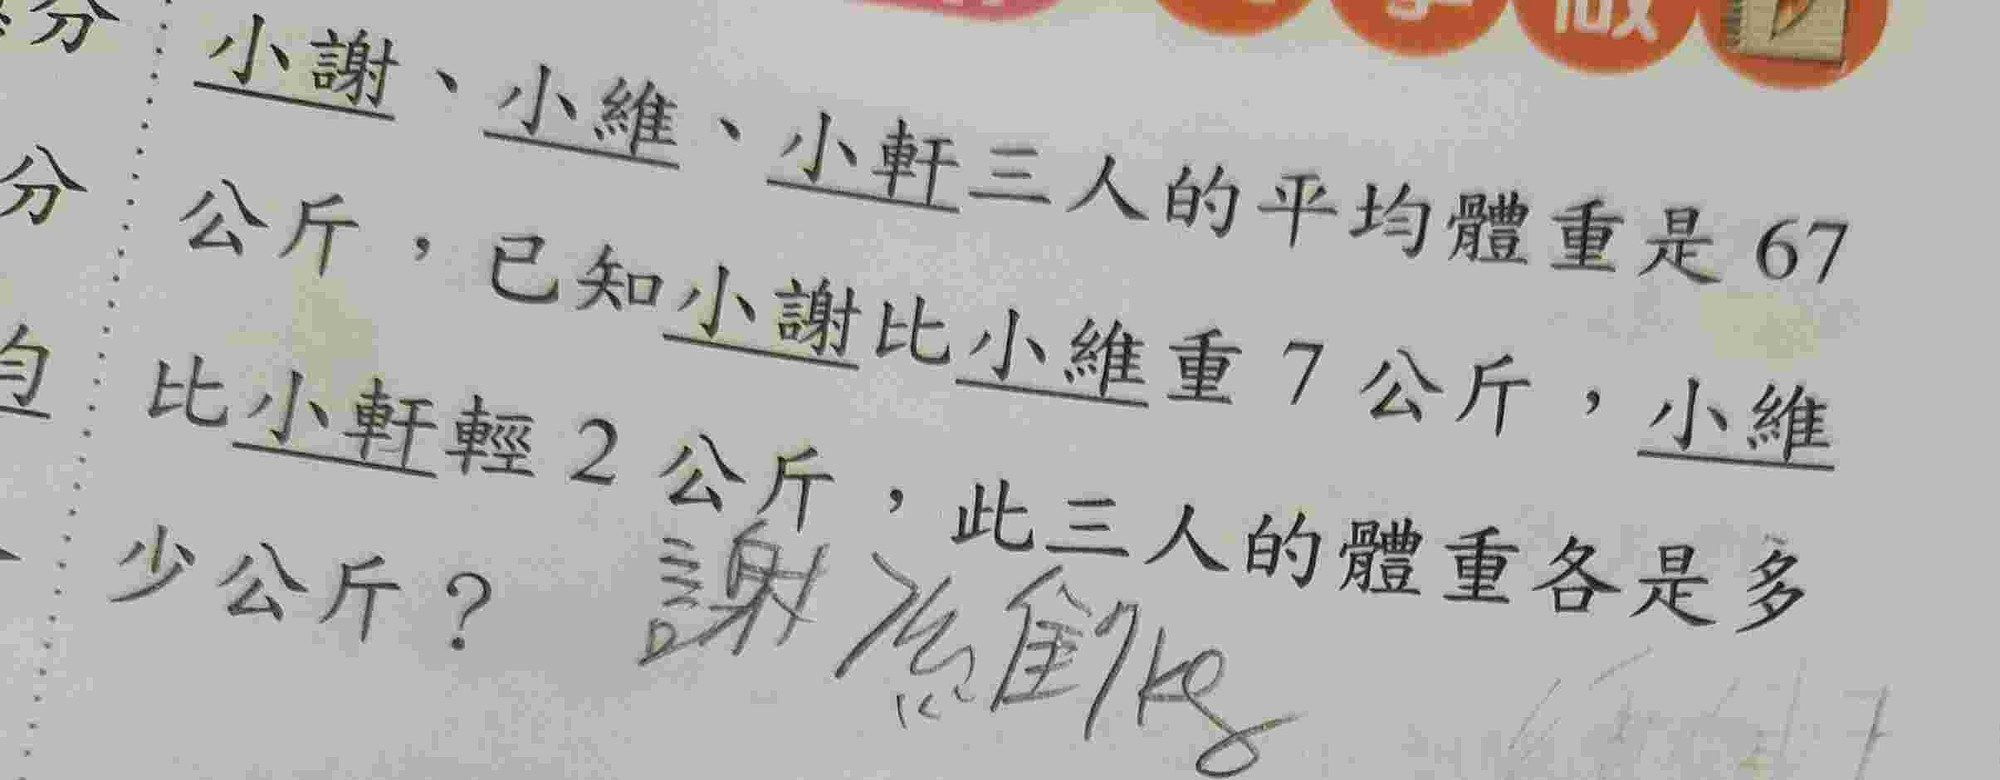 分
分
小謝、小維、小軒三人的平均體重是 67
公斤，已知小謝比小維重 7 公斤，小維
比小軒輕 2 公斤，此三人的體重各是多
少公斤？
謝＞維7kg